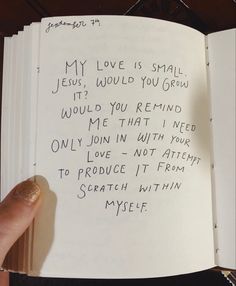 september 29.
MY LOVE IS SMALL.
JESUS, WOULD YOU GROW
IT?
WOULD YOU REMIND
ME THAT I NEED
ONLY JOIN IN WITH YOUR
LOVE - NOT ATTEMPT
TO PRODUCE IT FROM
SCRATCH WITHIN
MYSELF.